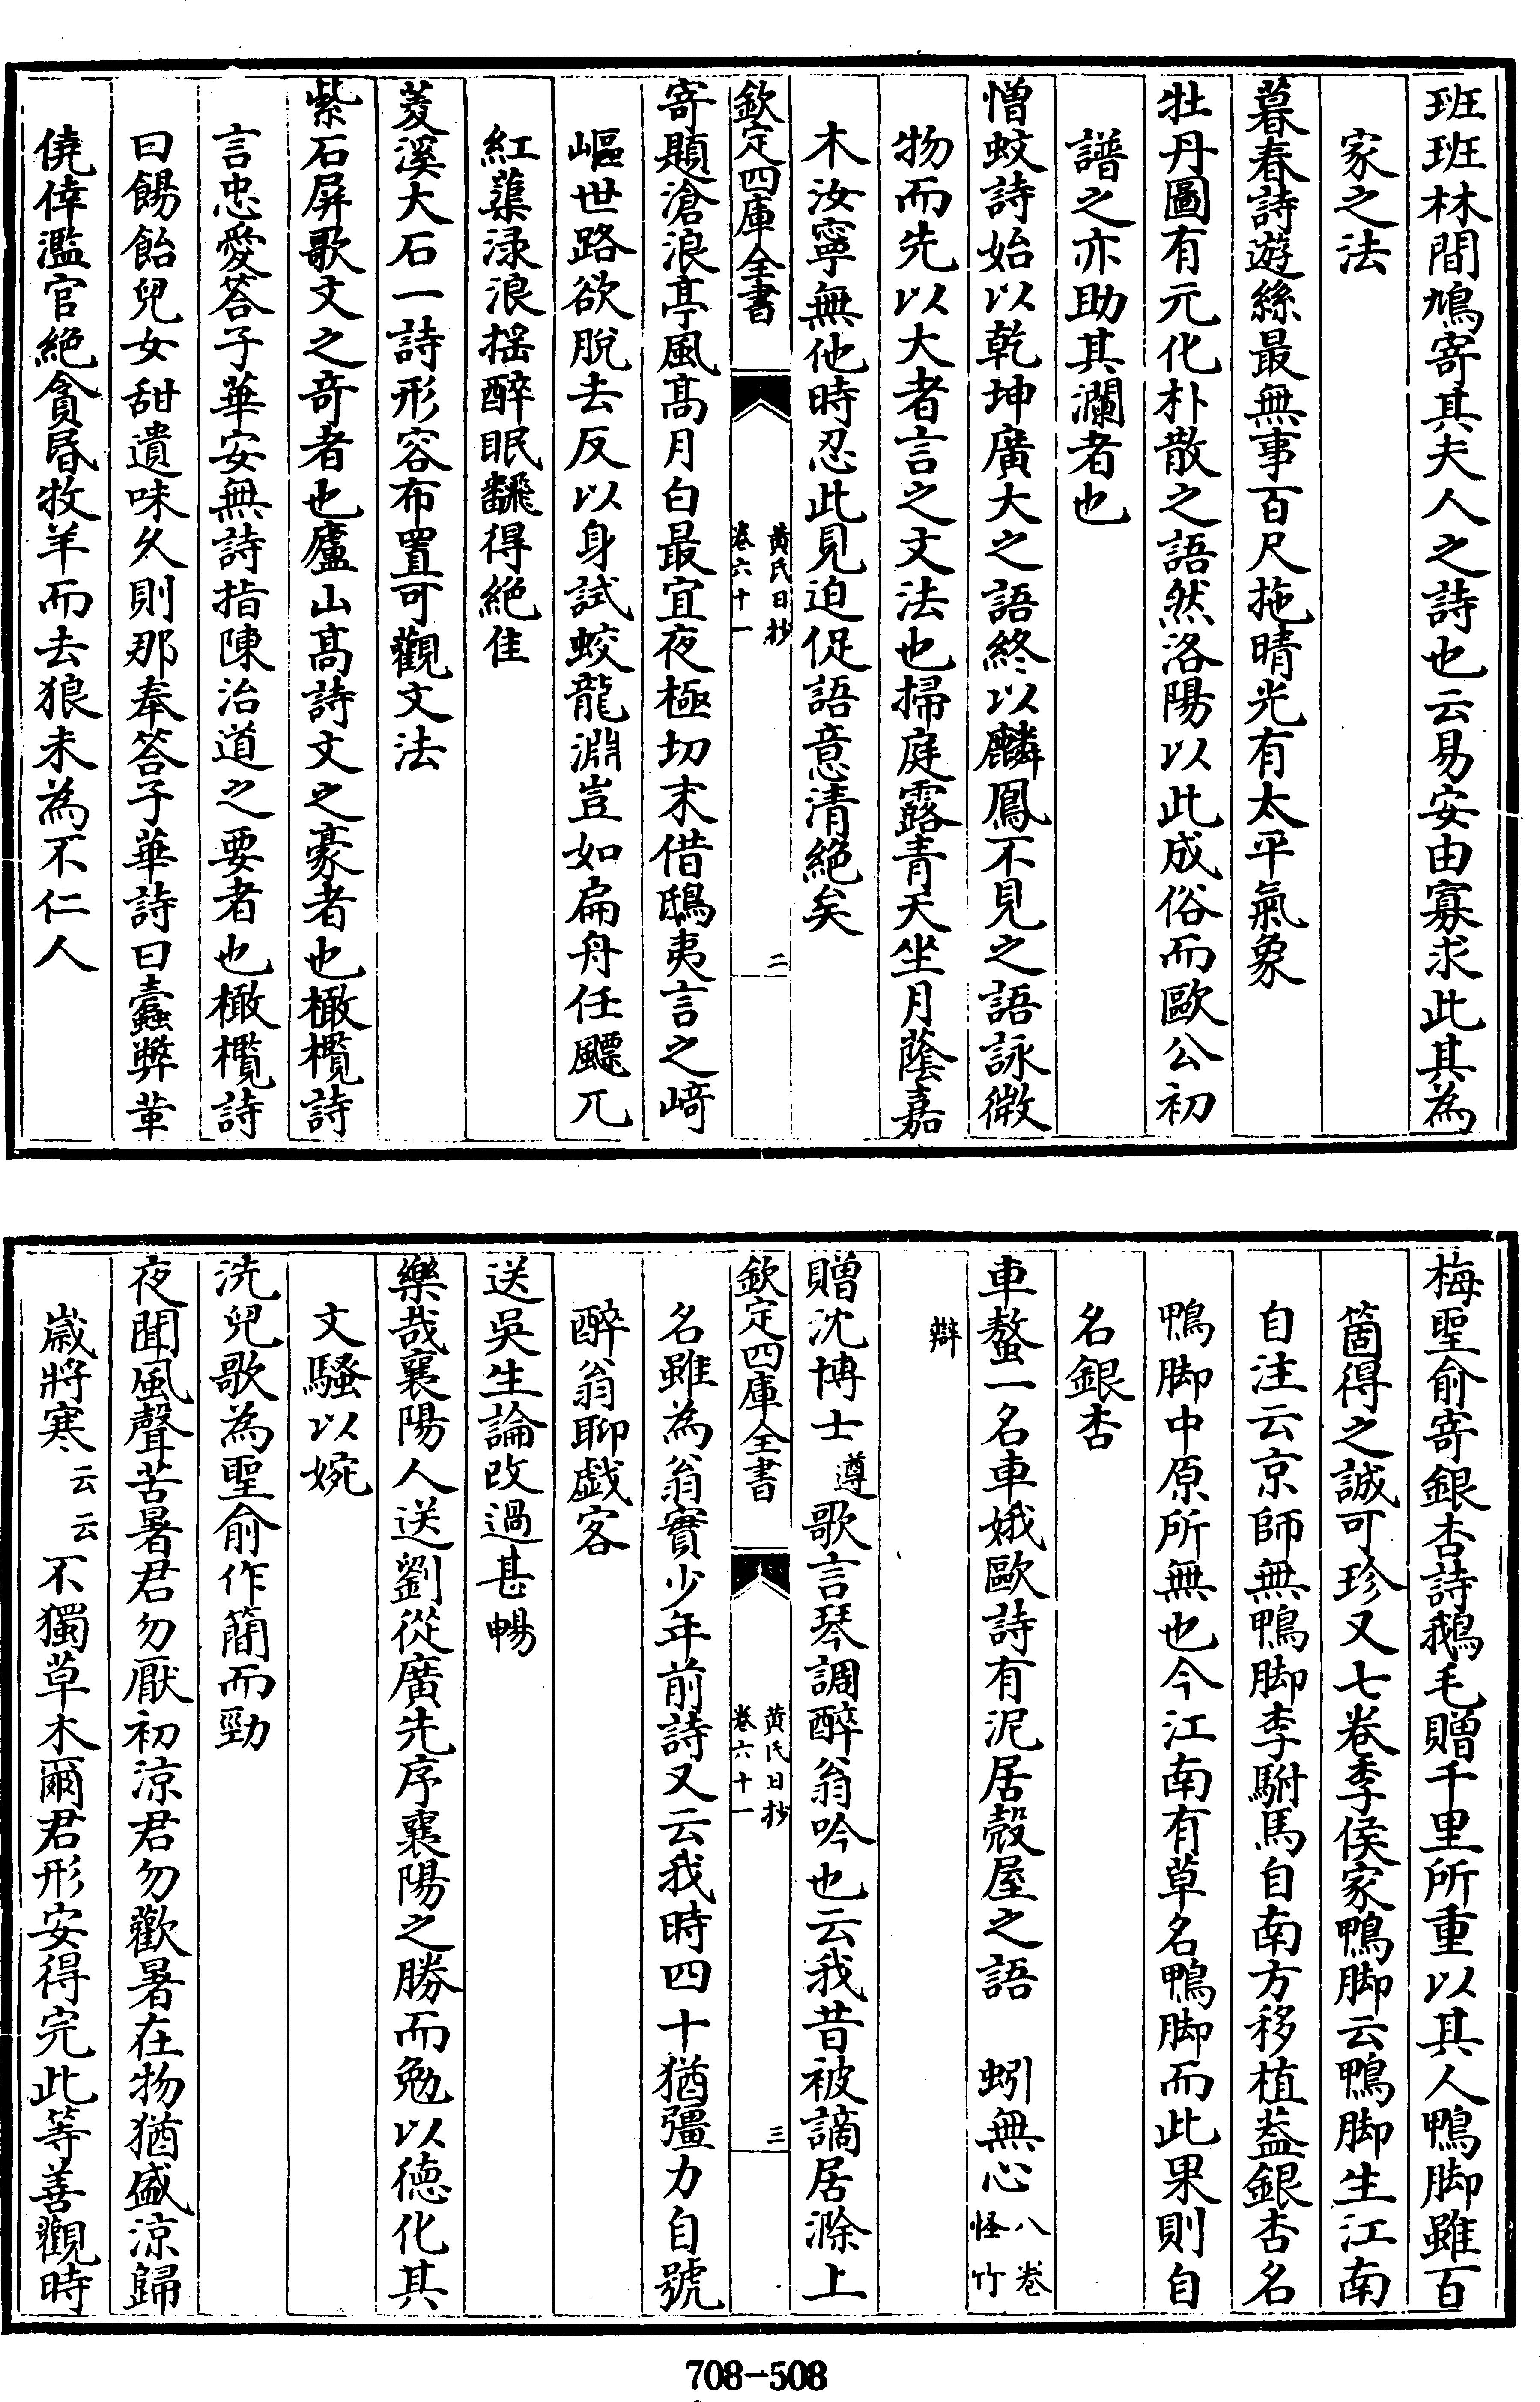 班班林間鳩寄其夫人之詩也云易安由寡求此其為
家之法
暮春詩遊絲最無事百尺拖晴光有太平氣象
牡丹圖有元化朴散之語然洛陽以此成俗而歐公初
譜之亦助其瀾者也
憎蚊詩始以乾坤廣大之語終以麟鳳不見之語詠微
物而先以大者言之文法也掃庭露青天坐月蔭嘉
木汝寧無他時忍此見迫促語意清絕矣
欽定四庫全書
黄氏日抄
卷六十一
二
寄題滄浪亭風髙月白最宜夜極切末借鴟夷言之﨑
嶇世路欲脫去反以身試蛟龍淵豈如扁舟任飄兀
紅蕖渌浪揺醉眠飜得絕佳
菱溪大石一詩形容布置可觀文法
紫石屏歌文之奇者也廬山髙詩文之豪者也橄欖詩
言忠愛答子華安無詩指陳治道之要者也橄欖詩
曰餳飴兒女甜遺味久則那奉答子華詩曰蠧弊革
僥倖濫官絕貪昏牧羊而去狼未為不仁人
梅聖俞寄銀杏詩鵝毛贈千里所重以其人鴨脚雖百
箇得之誠可珍又七卷李侯家鴨脚云鴨脚生江南
自注云京師無鴨脚李駙馬自南方移植葢銀杏名
鴨脚中原所無也今江南有草名鴨脚而此果則自
名銀杏
車螯一名車娥歐詩有泥居殼屋之語 蚓無心八卷怪竹
辯
贈沈博士遵歌言琴調醉翁吟也云我昔被謫居滁上
欽定四庫全書
黄氏日抄
卷六十一
三
名雖為翁實少年前詩又云我時四十猶彊力自號
醉翁聊戯客
送吳生論改過甚暢
樂哉襄陽人送劉從廣先序襄陽之勝而勉以德化其
文騷以婉
洗兒歌為聖俞作簡而勁
夜聞風聲苦暑君勿厭初涼君勿歡暑在物猶盛涼歸
嵗將寒云云不獨草木爾君形安得完此等善觀時
708-508